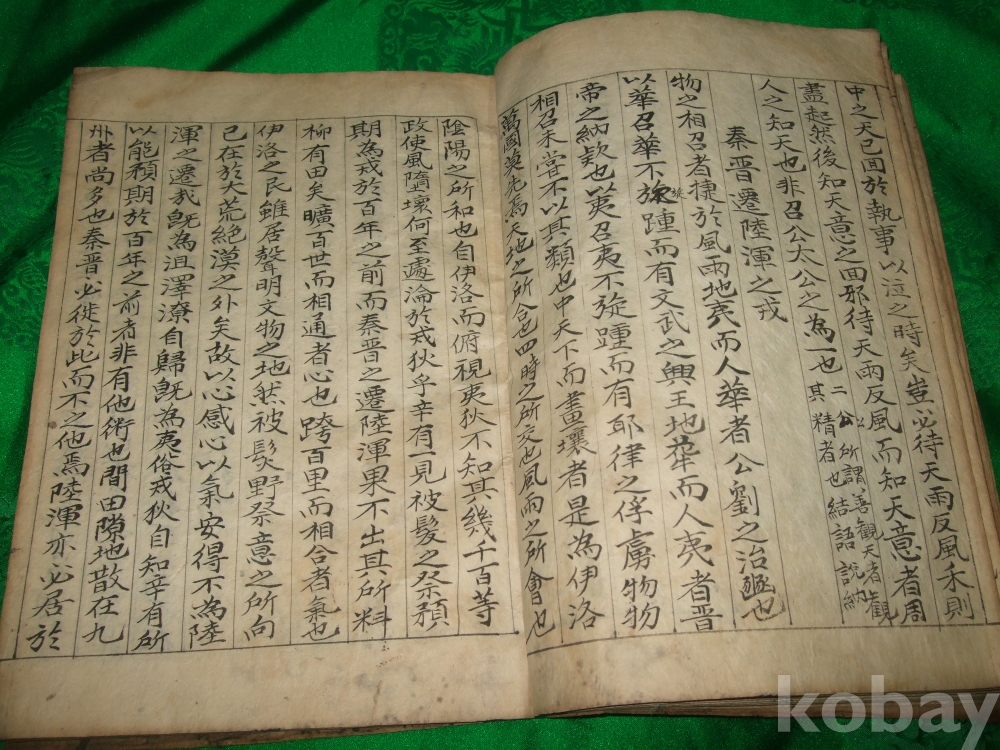 中之天已回於執事以泣之時矣豈必待天雨反風禾則
盡起然後知天意之回邪待天雨反風而知天意者周
人之知天也非召公太公之為一也
二公所謂善觀天者觀
其精者也結語說納
秦晉遷陸渾之戎
物之相召者捷於風雨地夷而人華者公劉之治豳也
以華召華不旋踵而有文武之興王地華而人夷者晉
帝之納款也以夷召夷不旋踵而有耶律之俘虜物物
相召未嘗不以其類也中天下而畫壤者是為伊洛
萬國莫先焉天地之所合也四時之所交也風雨之所會也
陰陽之所和也自伊洛而俯視夷狄不知其幾千百等
政使風墮壞何至處淪於戎狄乎辛有一見被髮之祭預
期為戎於百年之前而秦晉之遷陸渾果不出其所料
柳有田矣曠百世而相通者心也跨百里而相合者氣也
伊洛之民雖居聲明文物之地然被髮野祭意之所向
已在於大荒絶漠之外矣故以心感心以氣安得不為陸
渾之遷哉旣為沮澤潦自歸旣為夷俗戎狄自知辛有所
以能預期於百年之前者非有他術也間田隙地散在九
州者尚多也秦晉必徙於此而不之他焉陸渾亦必居於
kobay